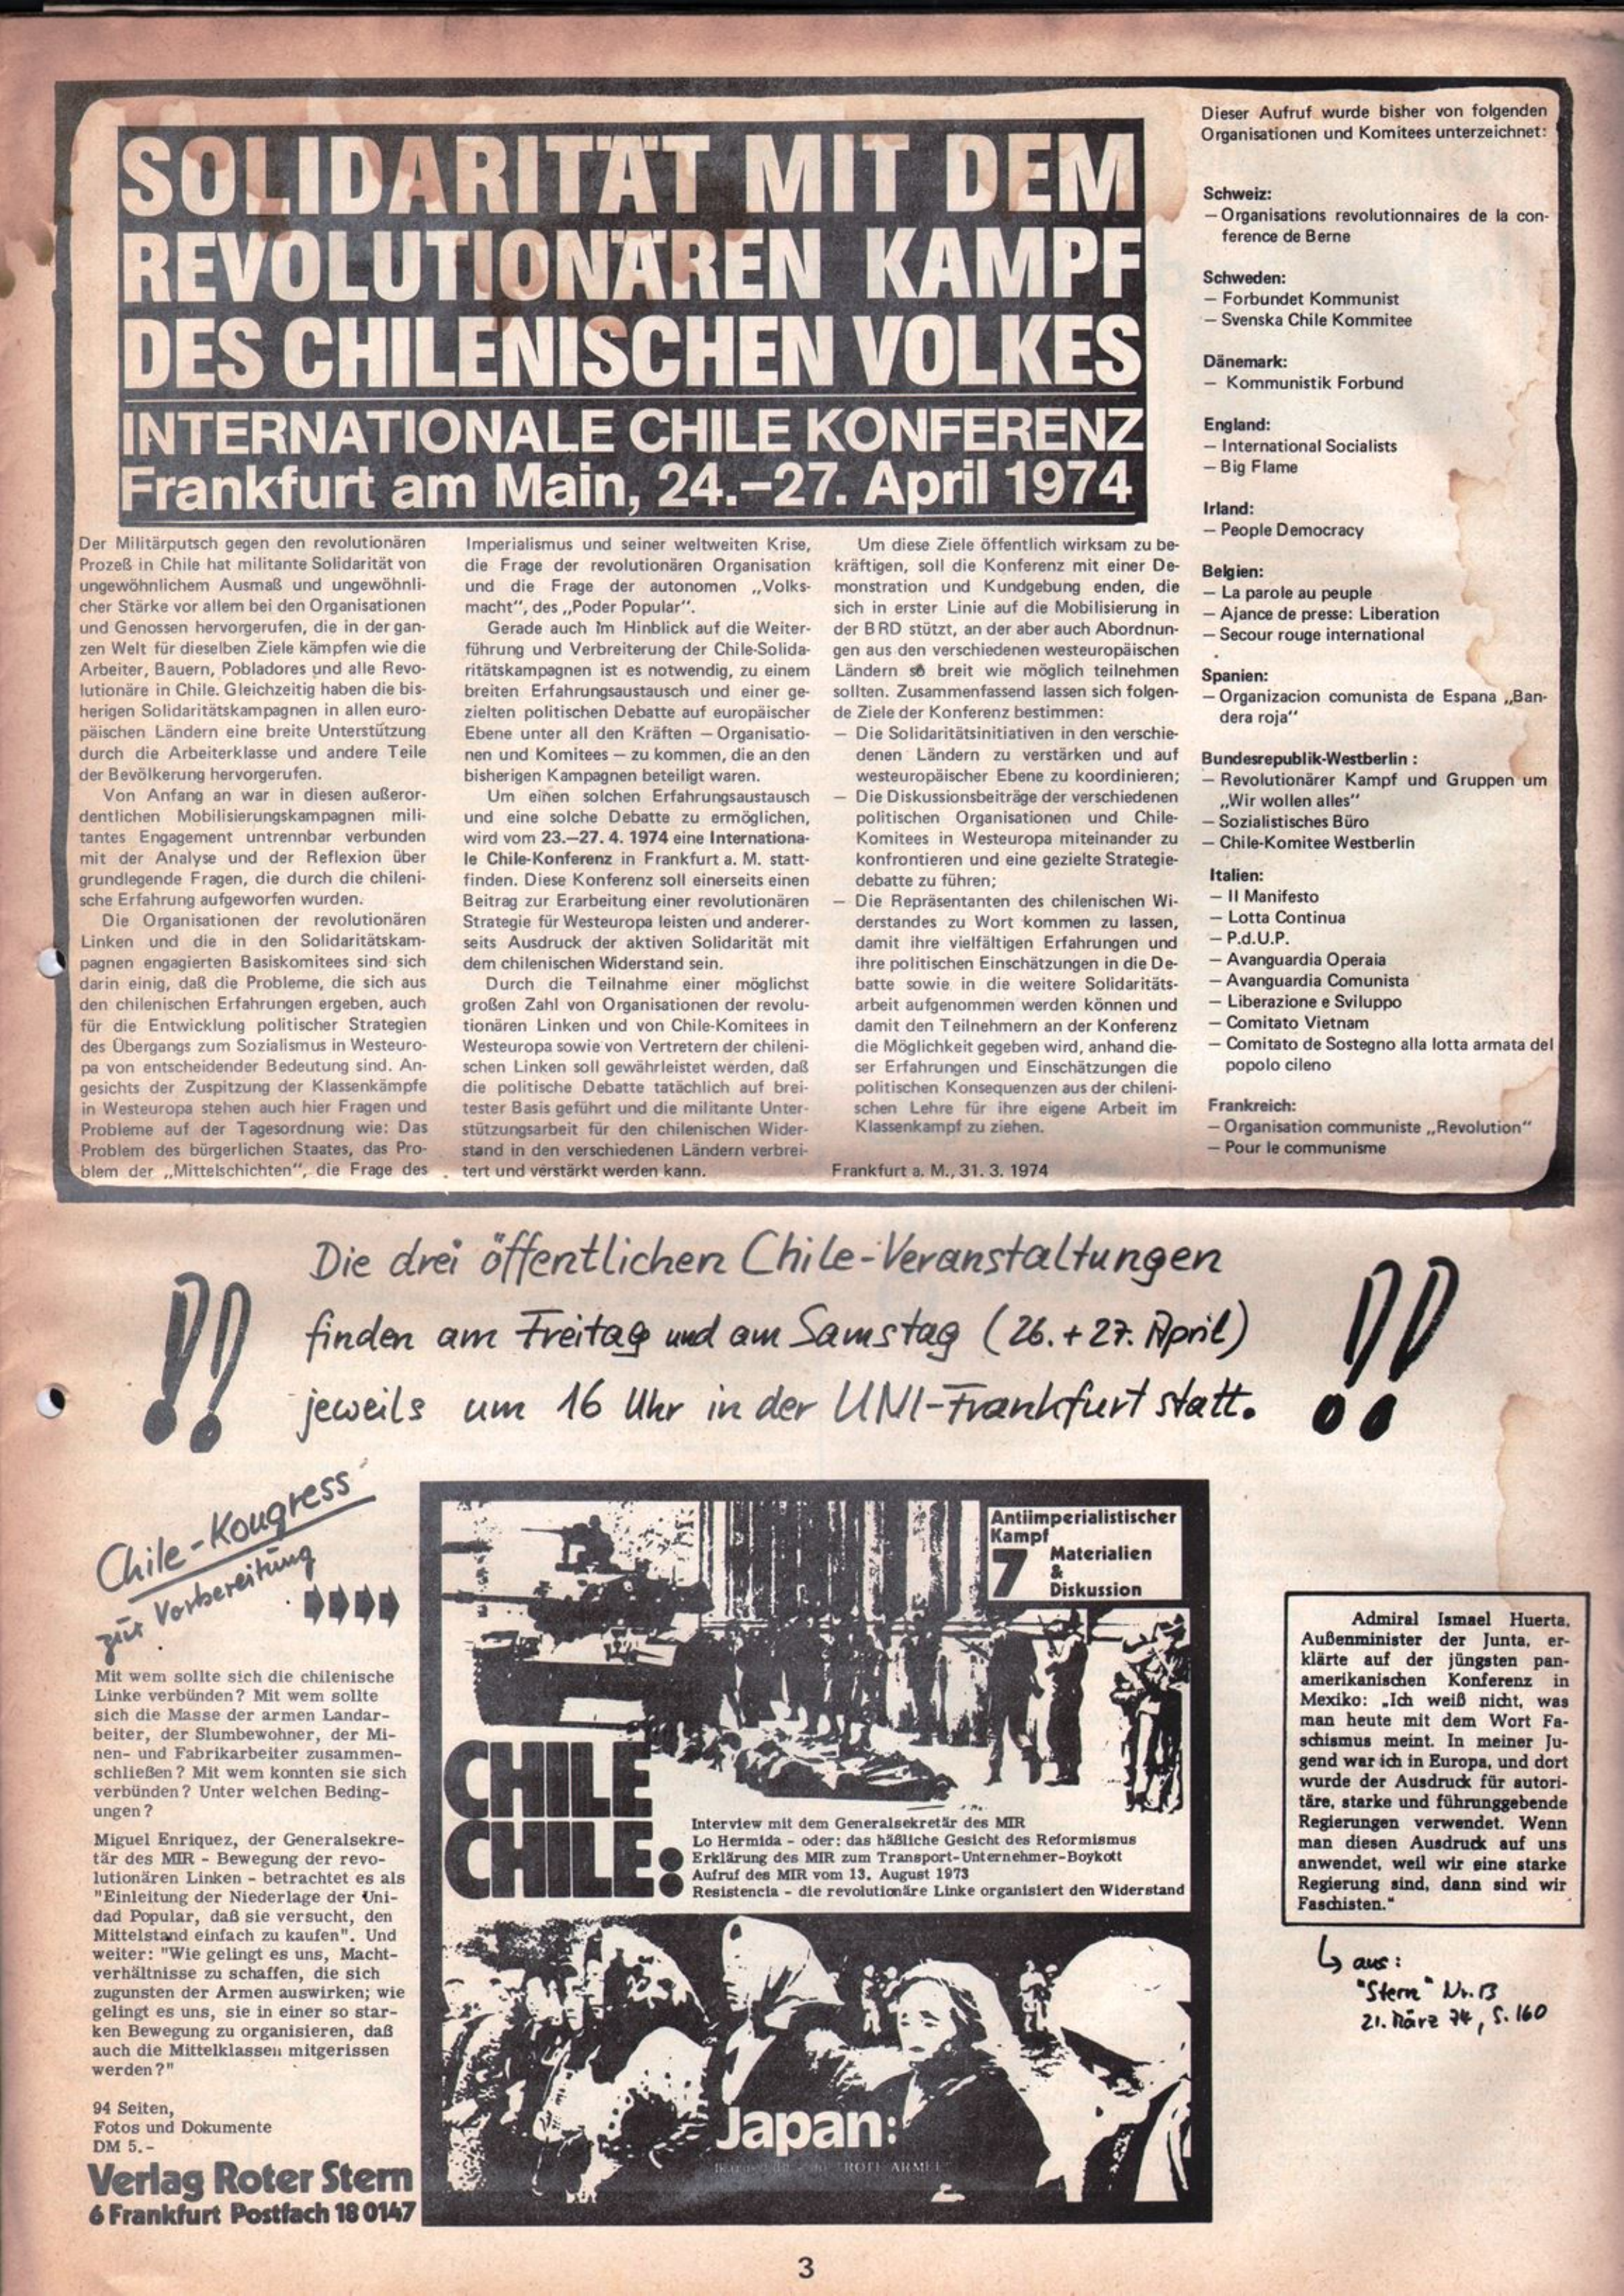 SOLIDARITÄT MIT DEM
REVOLUTIONÄREN KAMPF
DES CHILENISCHEN VOLKES
INTERNATIONALE CHILE KONFERENZ
Frankfurt am Main, 24.–27. April 1974
Der Militärputsch gegen den revolutionären
Prozeß in Chile hat militante Solidarität von
ungewöhnlichem Ausmaß und ungewöhnli-
cher Stärke vor allem bei den Organisationen
und Genossen hervorgerufen, die in der gan-
zen Welt für dieselben Ziele kämpfen wie die
Arbeiter, Bauern, Pobladores und alle Revo-
lutionäre in Chile. Gleichzeitig haben die bis-
herigen Solidaritätskampagnen in allen euro-
päischen Ländern eine breite Unterstützung
durch die Arbeiterklasse und andere Teile
der Bevölkerung hervorgerufen.
Von Anfang an war in diesen außeror-
dentlichen Mobilisierungskampagnen mili-
tantes Engagement untrennbar verbunden
mit der Analyse und der Reflexion über
grundlegende Fragen, die durch die chileni-
sche Erfahrung aufgeworfen wurden.
Die Organisationen der revolutionären
Linken und die in den Solidaritätskam-
pagnen engagierten Basiskomitees sind sich
darin einig, daß die Probleme, die sich aus
den chilenischen Erfahrungen ergeben, auch
für die Entwicklung politischer Strategien
des Übergangs zum Sozialismus in Westeuro-
pa von entscheidender Bedeutung sind. An-
gesichts der Zuspitzung der Klassenkämpfe
in Westeuropa stehen auch hier Fragen und
Probleme auf der Tagesordnung wie: Das
Problem des bürgerlichen Staates, das Pro-
blem der „Mittelschichten“, die Frage des
Imperialismus und seiner weltweiten Krise,
die Frage der revolutionären Organisation
und die Frage der autonomen „Volks-
macht“, des „Poder Popular“.
Gerade auch im Hinblick auf die Weiter-
führung und Verbreiterung der Chile-Solida-
ritätskampagnen ist es notwendig, zu einem
breiten Erfahrungsaustausch und einer ge-
zielten politischen Debatte auf europäischer
Ebene unter all den Kräften – Organisatio-
nen und Komitees – zu kommen, die an den
bisherigen Kampagnen beteiligt waren.
Um einen solchen Erfahrungsaustausch
und eine solche Debatte zu ermöglichen,
wird vom 23.–27. 4. 1974 eine Internationa-
le Chile-Konferenz in Frankfurt a. M. statt-
finden. Diese Konferenz soll einerseits einen
Beitrag zur Erarbeitung einer revolutionären
Strategie für Westeuropa leisten und anderer-
seits Ausdruck der aktiven Solidarität mit
dem chilenischen Widerstand sein.
Durch die Teilnahme einer möglichst
großen Zahl von Organisationen der revolu-
tionären Linken und von Chile-Komitees in
Westeuropa sowie von Vertretern der chileni-
schen Linken soll gewährleistet werden, daß
die politische Debatte tatächlich auf brei-
tester Basis geführt und die militante Unter-
stützungsarbeit für den chilenischen Wider-
stand in den verschiedenen Ländern verbrei-
tert und verstärkt werden kann.
Um diese Ziele öffentlich wirksam zu be-
kräftigen, soll die Konferenz mit einer De-
monstration und Kundgebung enden, die
sich in erster Linie auf die Mobilisierung in
der BRD stützt, an der aber auch Abordnun-
gen aus den verschiedenen westeuropäischen
Ländern so breit wie möglich teilnehmen
sollten. Zusammenfassend lassen sich folgen-
de Ziele der Konferenz bestimmen:
– Die Solidaritätsinitiativen in den verschie-
denen Ländern zu verstärken und auf
westeuropäischer Ebene zu koordinieren;
– Die Diskussionsbeiträge der verschiedenen
politischen Organisationen und Chile-
Komitees in Westeuropa miteinander zu
konfrontieren und eine gezielte Strategie-
debatte zu führen;
– Die Repräsentanten des chilenischen Wi-
derstandes zu Wort kommen zu lassen,
damit ihre vielfältigen Erfahrungen und
ihre politischen Einschätzungen in die De-
batte sowie in die weitere Solidaritäts-
arbeit aufgenommen werden können und
damit den Teilnehmern an der Konferenz
die Möglichkeit gegeben wird, anhand die-
ser Erfahrungen und Einschätzungen die
politischen Konsequenzen aus der chileni-
schen Lehre für ihre eigene Arbeit im
Klassenkampf zu ziehen.
Frankfurt a. M., 31. 3. 1974
Dieser Aufruf wurde bisher von folgenden
Organisationen und Komitees unterzeichnet:
Schweiz:
– Organisations revolutionnaires de la con-
ference de Berne
Schweden:
– Forbundet Kommunist
– Svenska Chile Kommitee
Dänemark:
– Kommunistik Forbund
England:
– International Socialists
– Big Flame
Irland:
– People Democracy
Belgien:
– La parole au peuple
– Ajance de presse: Liberation
– Secour rouge international
Spanien:
– Organizacion comunista de Espana „Ban-
dera roja“
Bundesrepublik-Westberlin :
– Revolutionärer Kampf und Gruppen um
„Wir wollen alles“
– Sozialistisches Büro
– Chile-Komitee Westberlin
Italien:
– Il Manifesto
– Lotta Continua
– P.d.U.P.
– Avanguardia Operaia
– Avanguardia Comunista
– Liberazione e Sviluppo
– Comitato Vietnam
– Comitato de Sostegno alla lotta armata del
popolo cileno
Frankreich:
– Organisation communiste „Revolution“
– Pour le communisme
!! Die drei öffentlichen Chile-Veranstaltungen !!
finden am Freitag und am Samstag (26. + 27. April)
jeweils um 16 Uhr in der UNI-Frankfurt statt.
Chile-Kongress
zur Vorbereitung
Mit wem sollte sich die chilenische
Linke verbünden? Mit wem sollte
sich die Masse der armen Landar-
beiter, der Slumbewohner, der Mi-
nen- und Fabrikarbeiter zusammen-
schließen? Mit wem konnten sie sich
verbünden? Unter welchen Beding-
ungen?
Miguel Enriquez, der Generalsekre-
tär des MIR - Bewegung der revo-
lutionären Linken - betrachtet es als
"Einleitung der Niederlage der Uni-
dad Popular, daß sie versucht, den
Mittelstand einfach zu kaufen". Und
weiter: "Wie gelingt es uns, Macht-
verhältnisse zu schaffen, die sich
zugunsten der Armen auswirken; wie
gelingt es uns, sie in einer so star-
ken Bewegung zu organisieren, daß
auch die Mittelklassen mitgerissen
werden?"
94 Seiten,
Fotos und Dokumente
DM 5.-
Verlag Roter Stern
6 Frankfurt Postfach 18 0147
Antiimperialistischer
Kampf
7 Materialien
&
Diskussion
CHILE
CHILE:
Interview mit dem Generalsekretär des MIR
Lo Hermida - oder: das häßliche Gesicht des Reformismus
Erklärung des MIR zum Transport-Unternehmer-Boykott
Aufruf des MIR vom 13. August 1973
Resistencia - die revolutionäre Linke organisiert den Widerstand
Japan:
"ROTE ARMEE"
Admiral Ismael Huerta,
Außenminister der Junta, er-
klärte auf der jüngsten pan-
amerikanischen Konferenz in
Mexiko: „Ich weiß nicht, was
man heute mit dem Wort Fa-
schismus meint. In meiner Ju-
gend war ich in Europa, und dort
wurde der Ausdruck für autori-
täre, starke und führunggebende
Regierungen verwendet. Wenn
man diesen Ausdruck auf uns
anwendet, weil wir eine starke
Regierung sind, dann sind wir
Faschisten.“
↳ aus:
"Stern" Nr. 13
21. März 74, S. 160
3